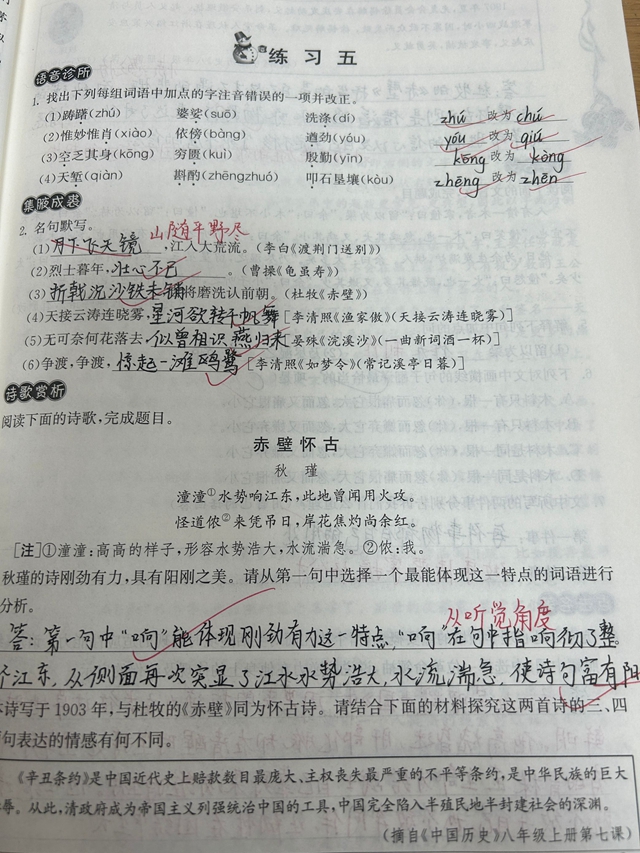 练习五
语音诊所
1. 找出下列每组词语中加点的字注音错误的一项并改正。
(1)踌躇(zhú) 婆娑(suō) 洗涤(dí) zhú 改为 chú
(2)惟妙惟肖(xiào) 依傍(bàng) 遒劲(yóu) yóu 改为 qiú
(3)空乏其身(kōng) 穷匮(kuì) 殷勤(yīn) kōng 改为 kòng
(4)天堑(qiàn) 斟酌(zhēngzhuó) 叩石垦壤(kòu) zhēng 改为 zhēn
集腋成裘
2. 名句默写。
山随平野尽
(1)月下飞天镜,江入大荒流。(李白《渡荆门送别》)
(2)烈士暮年,壮心不已。(曹操《龟虽寿》)
(3)折戟沉沙铁未销,将磨洗认前朝。(杜牧《赤壁》)
(4)天接云涛连晓雾,星河欲转千帆舞[李清照《渔家傲》(天接云涛连晓雾)]
(5)无可奈何花落去,似曾相识燕归来[晏殊《浣溪沙》(一曲新词酒一杯)]
(6)争渡,争渡,惊起一滩鸥鹭[李清照《如梦令》(常记溪亭日暮)]
诗歌赏析
阅读下面的诗歌,完成题目。
赤壁怀古
秋瑾
潼潼①水势响江东,此地曾闻用火攻。
怪道侬②来凭吊日,岸花焦灼尚余红。
[注]①潼潼:高高的样子,形容水势浩大,水流湍急。②侬:我。
秋瑾的诗刚劲有力,具有阳刚之美。请从第一句中选择一个最能体现这一特点的词语进行
分析。
从听觉角度
答:第一句中“响”能体现刚劲有力这一特点,“响”在句中指响彻了整
个江东,从侧面再次突显了江水水势浩大,水流湍急,使诗句富有阳
本诗写于1903年,与杜牧的《赤壁》同为怀古诗。请结合下面的材料探究这两首诗的三、四
句表达的情感有何不同。
《辛丑条约》是中国近代史上赔款数目最庞大、主权丧失最严重的不平等条约,是中华民族的巨大
辱。从此,清政府成为帝国主义列强统治中国的工具,中国完全陷入半殖民地半封建社会的深渊。
(摘自《中国历史》八年级上册第七课)